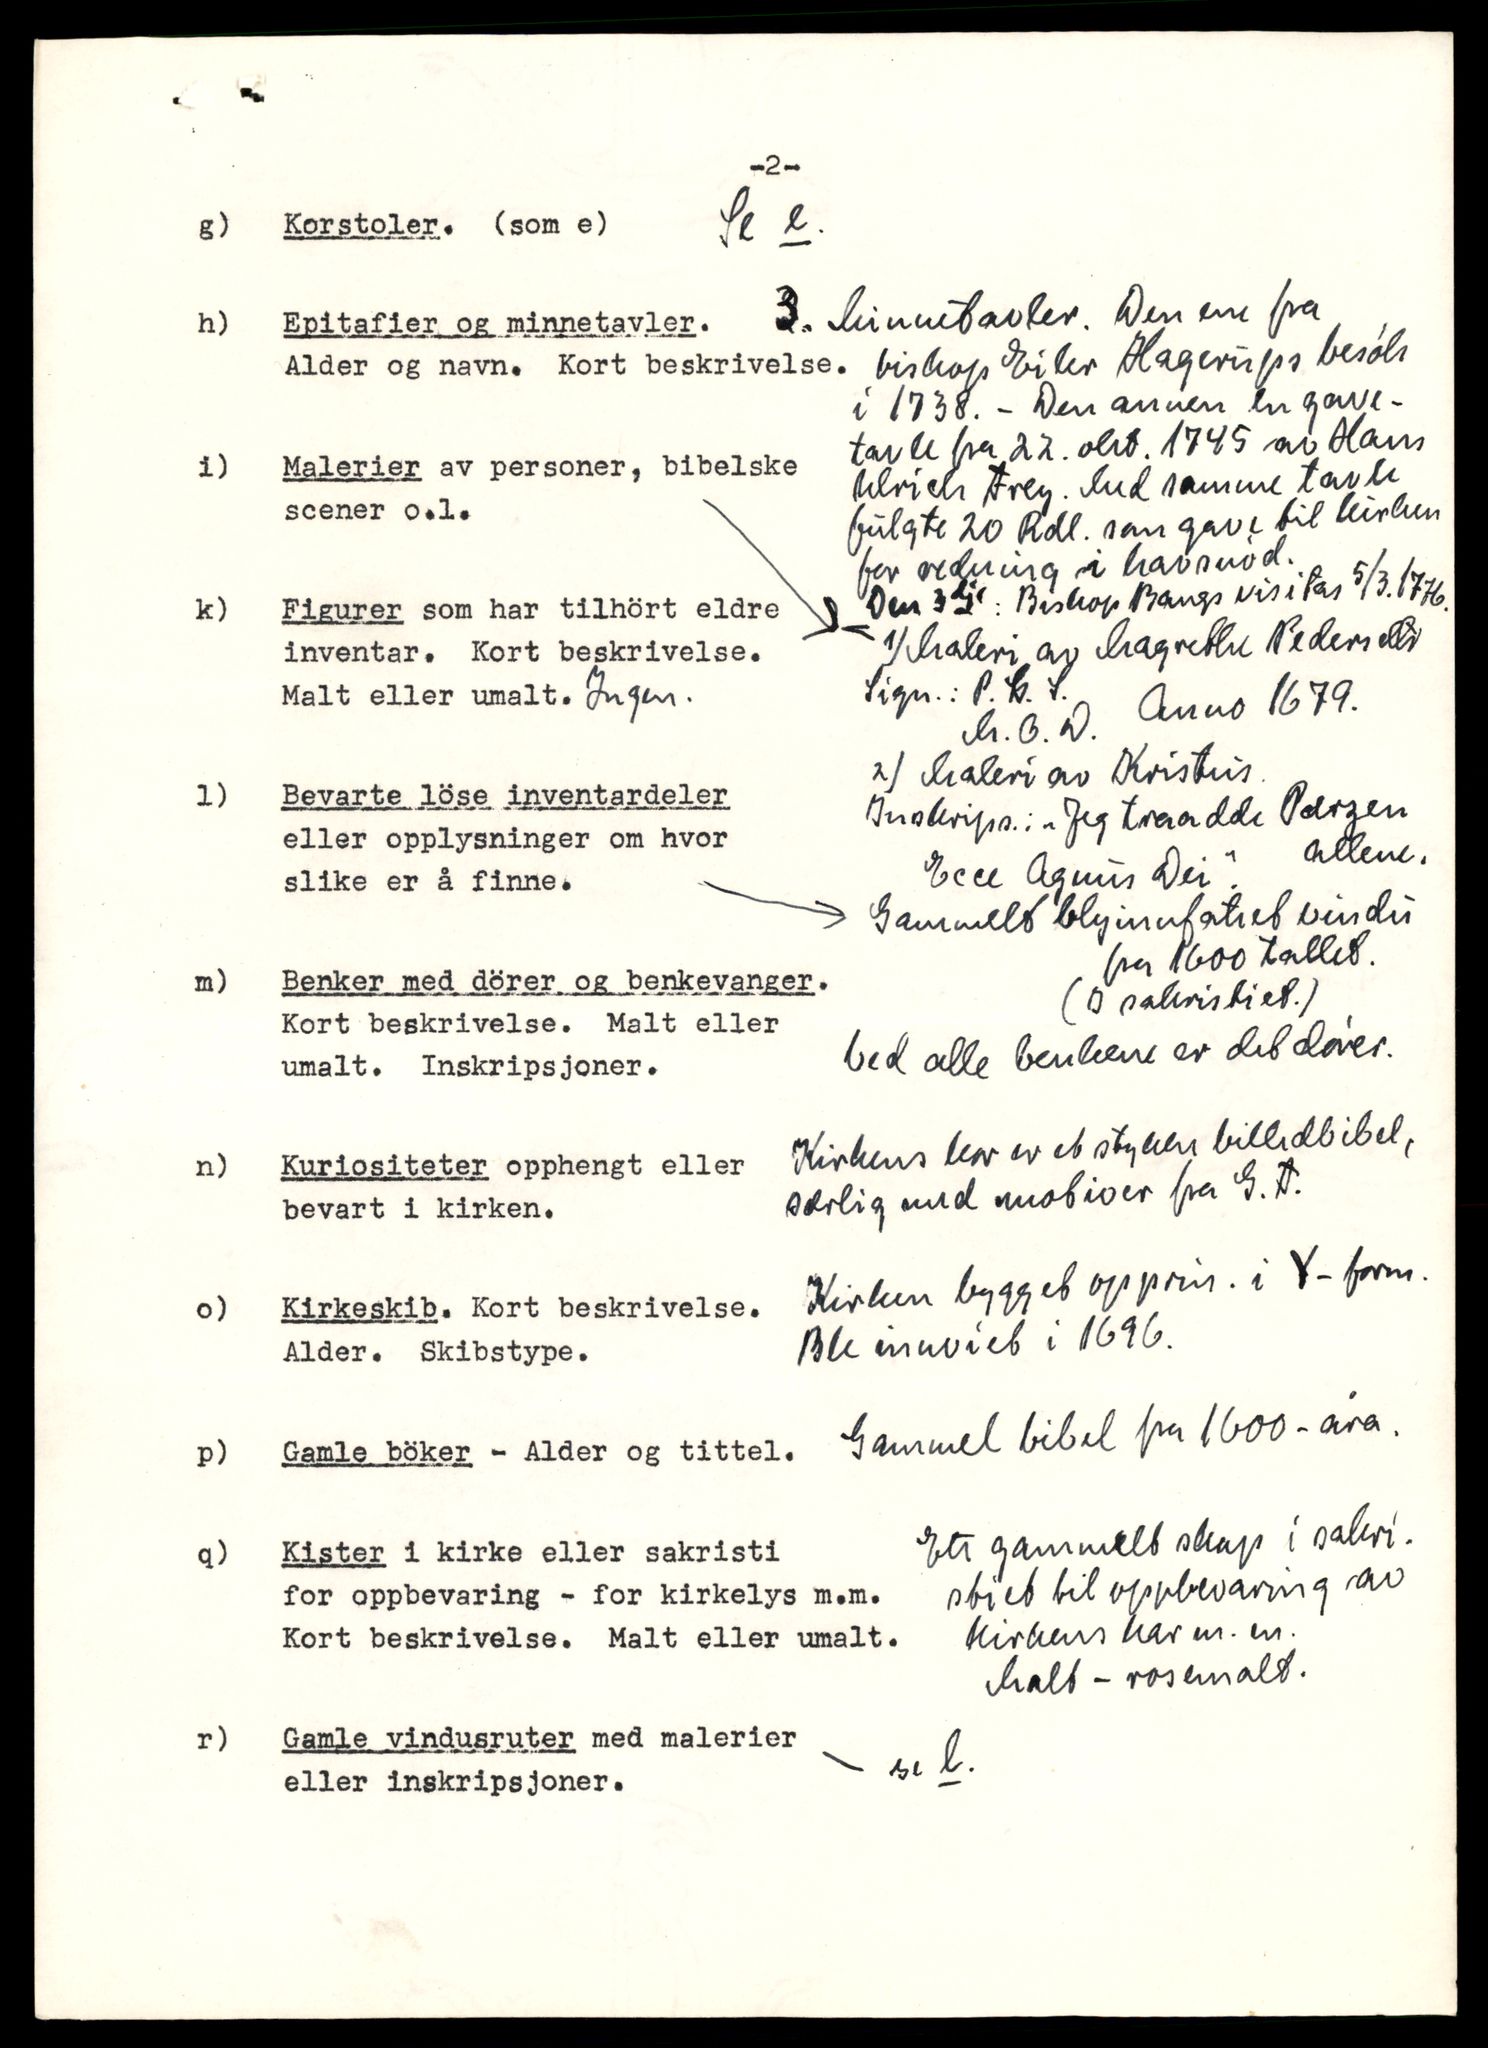 -2-
g) Korstoler. (som e) Se e.
h) Epitafier og minnetavler. 3. Minnetavler. Den ene fra
Alder og navn. Kort beskrivelse. biskop Eiler Hagerups besøk
i 1738. - Den annen en gave-
tavle fra 22. okt. 1745 av Hans
Ulrich Frey. Med samme tavle
fulgte 20 Rdl. som gave til kirken
for redning i havsnöd.
Den 3dje: Biskop Bangs visitas 5/3.
i) Malerier av personer, bibelske
scener o.l.
1) Maleri av Magrethe
Sign.: P. S.
M. O. D. Anno 1679.
2) Maleri av Kristus.
Inskrips.: "Jeg traadde Perzen
allene.
Ecce Agnus Dei".
k) Figurer som har tilhört eldre
inventar. Kort beskrivelse.
Malt eller umalt. Ingen.
l) Bevarte löse inventardeler
eller opplysninger om hvor
slike er å finne.
Gammelt blyinnfattet vindu
fra 1600 tallet.
(I sakristiet.)
m) Benker med dörer og benkevanger.
Kort beskrivelse. Malt eller
umalt. Inskripsjoner. Ved alle benkene er det dører.
n) Kuriositeter opphengt eller Kirkens kor er et stykke billedbibel,
bevart i kirken. særlig med motiver fra G.T.
o) Kirkeskib. Kort beskrivelse. Kirken bygget opprin. i Y-form.
Alder. Skibstype. Ble innviet i 1696.
p) Gamle böker - Alder og tittel. Gammel bibel fra 1600-åra.
q) Kister i kirke eller sakristi Ett gammelt skap i sakri-
for oppbevaring - for kirkelys m.m. stiet til oppbevaring av
Kort beskrivelse. Malt eller umalt. kirkens kar m.m.
Malt - rosemalt.
r) Gamle vindusruter med malerier
eller inskripsjoner. - se l.